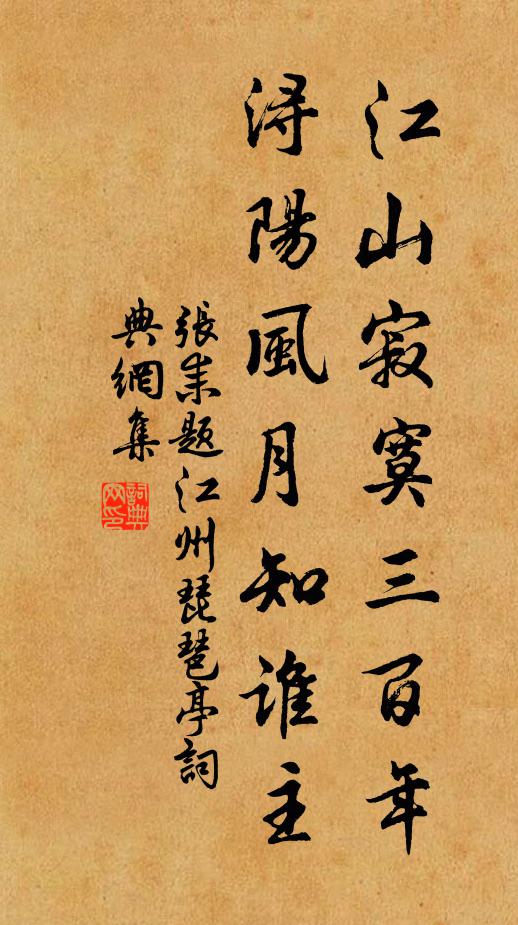 江山寂寞三百年
潯陽風月知誰主
張耒題江州琵琶亭詞
典網集
詞典網印